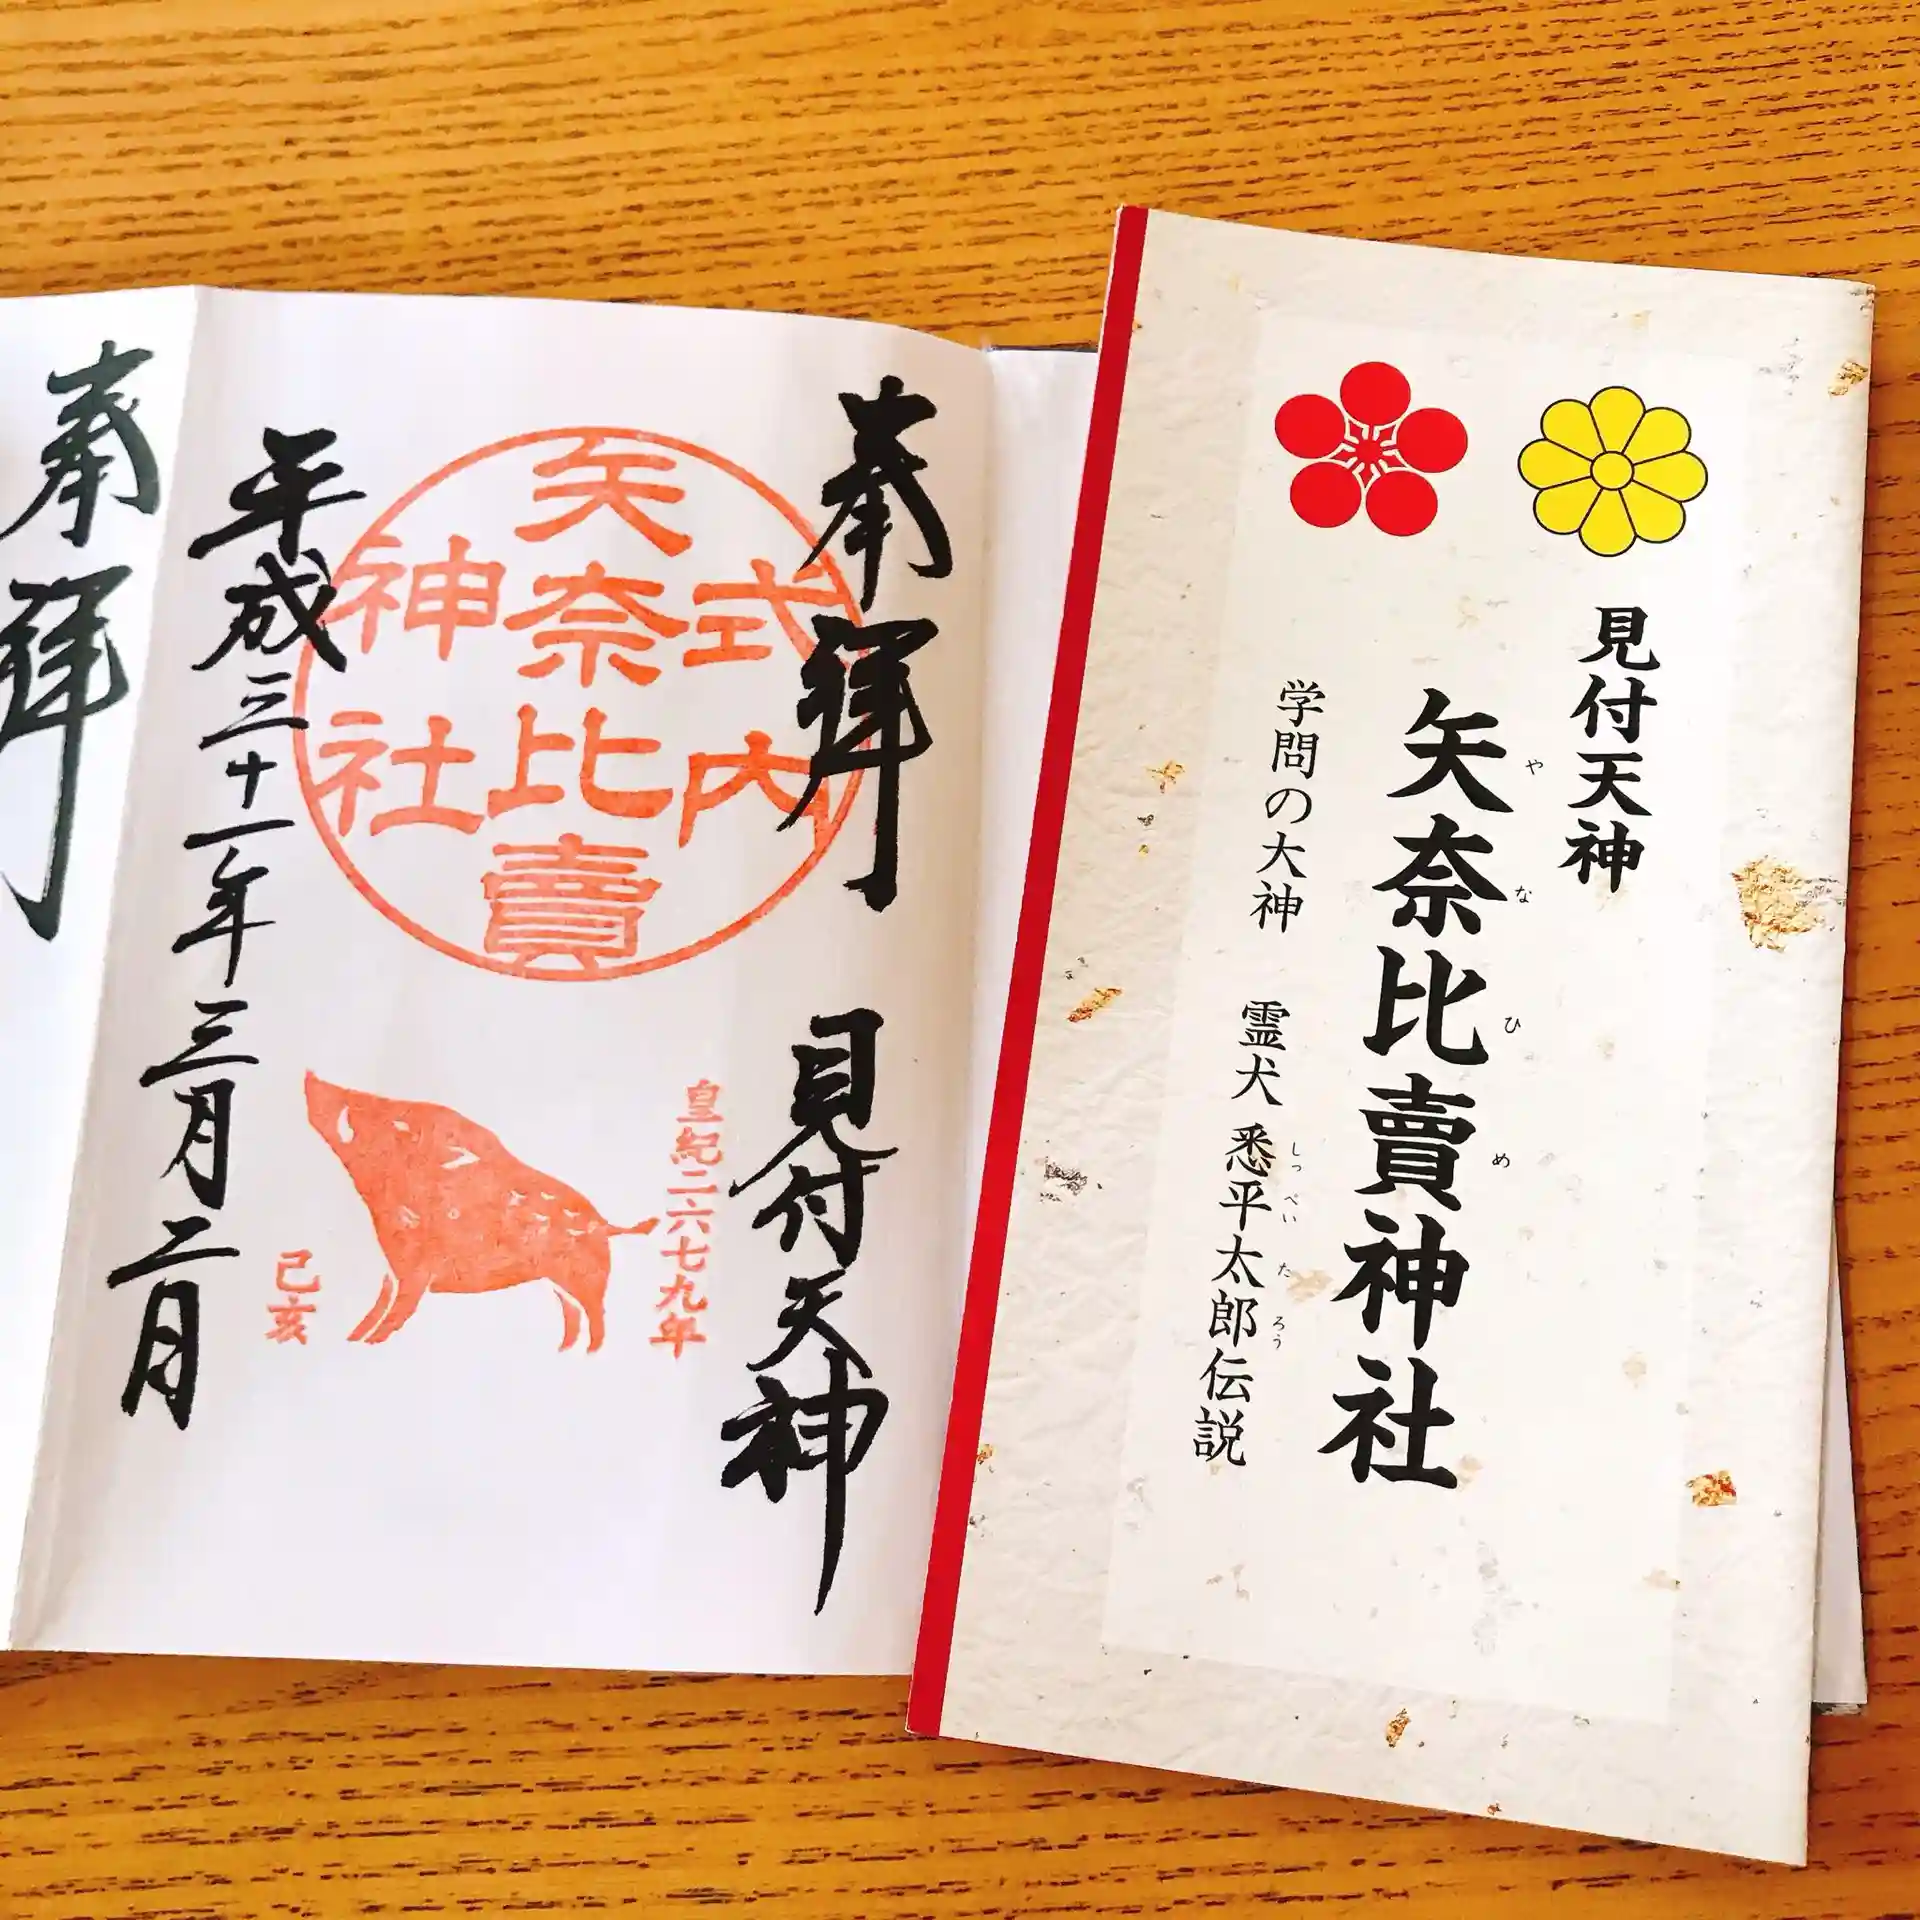 見付天神
矢奈比賣神社
や な ひ め
学問の大神 霊犬 悉平太郎伝説
しっ ぺい た ろう
奉拝 見付天神
式内
矢奈比賣
神社
皇紀二六七九年
己亥
平成三十一年三月二日
奉拝